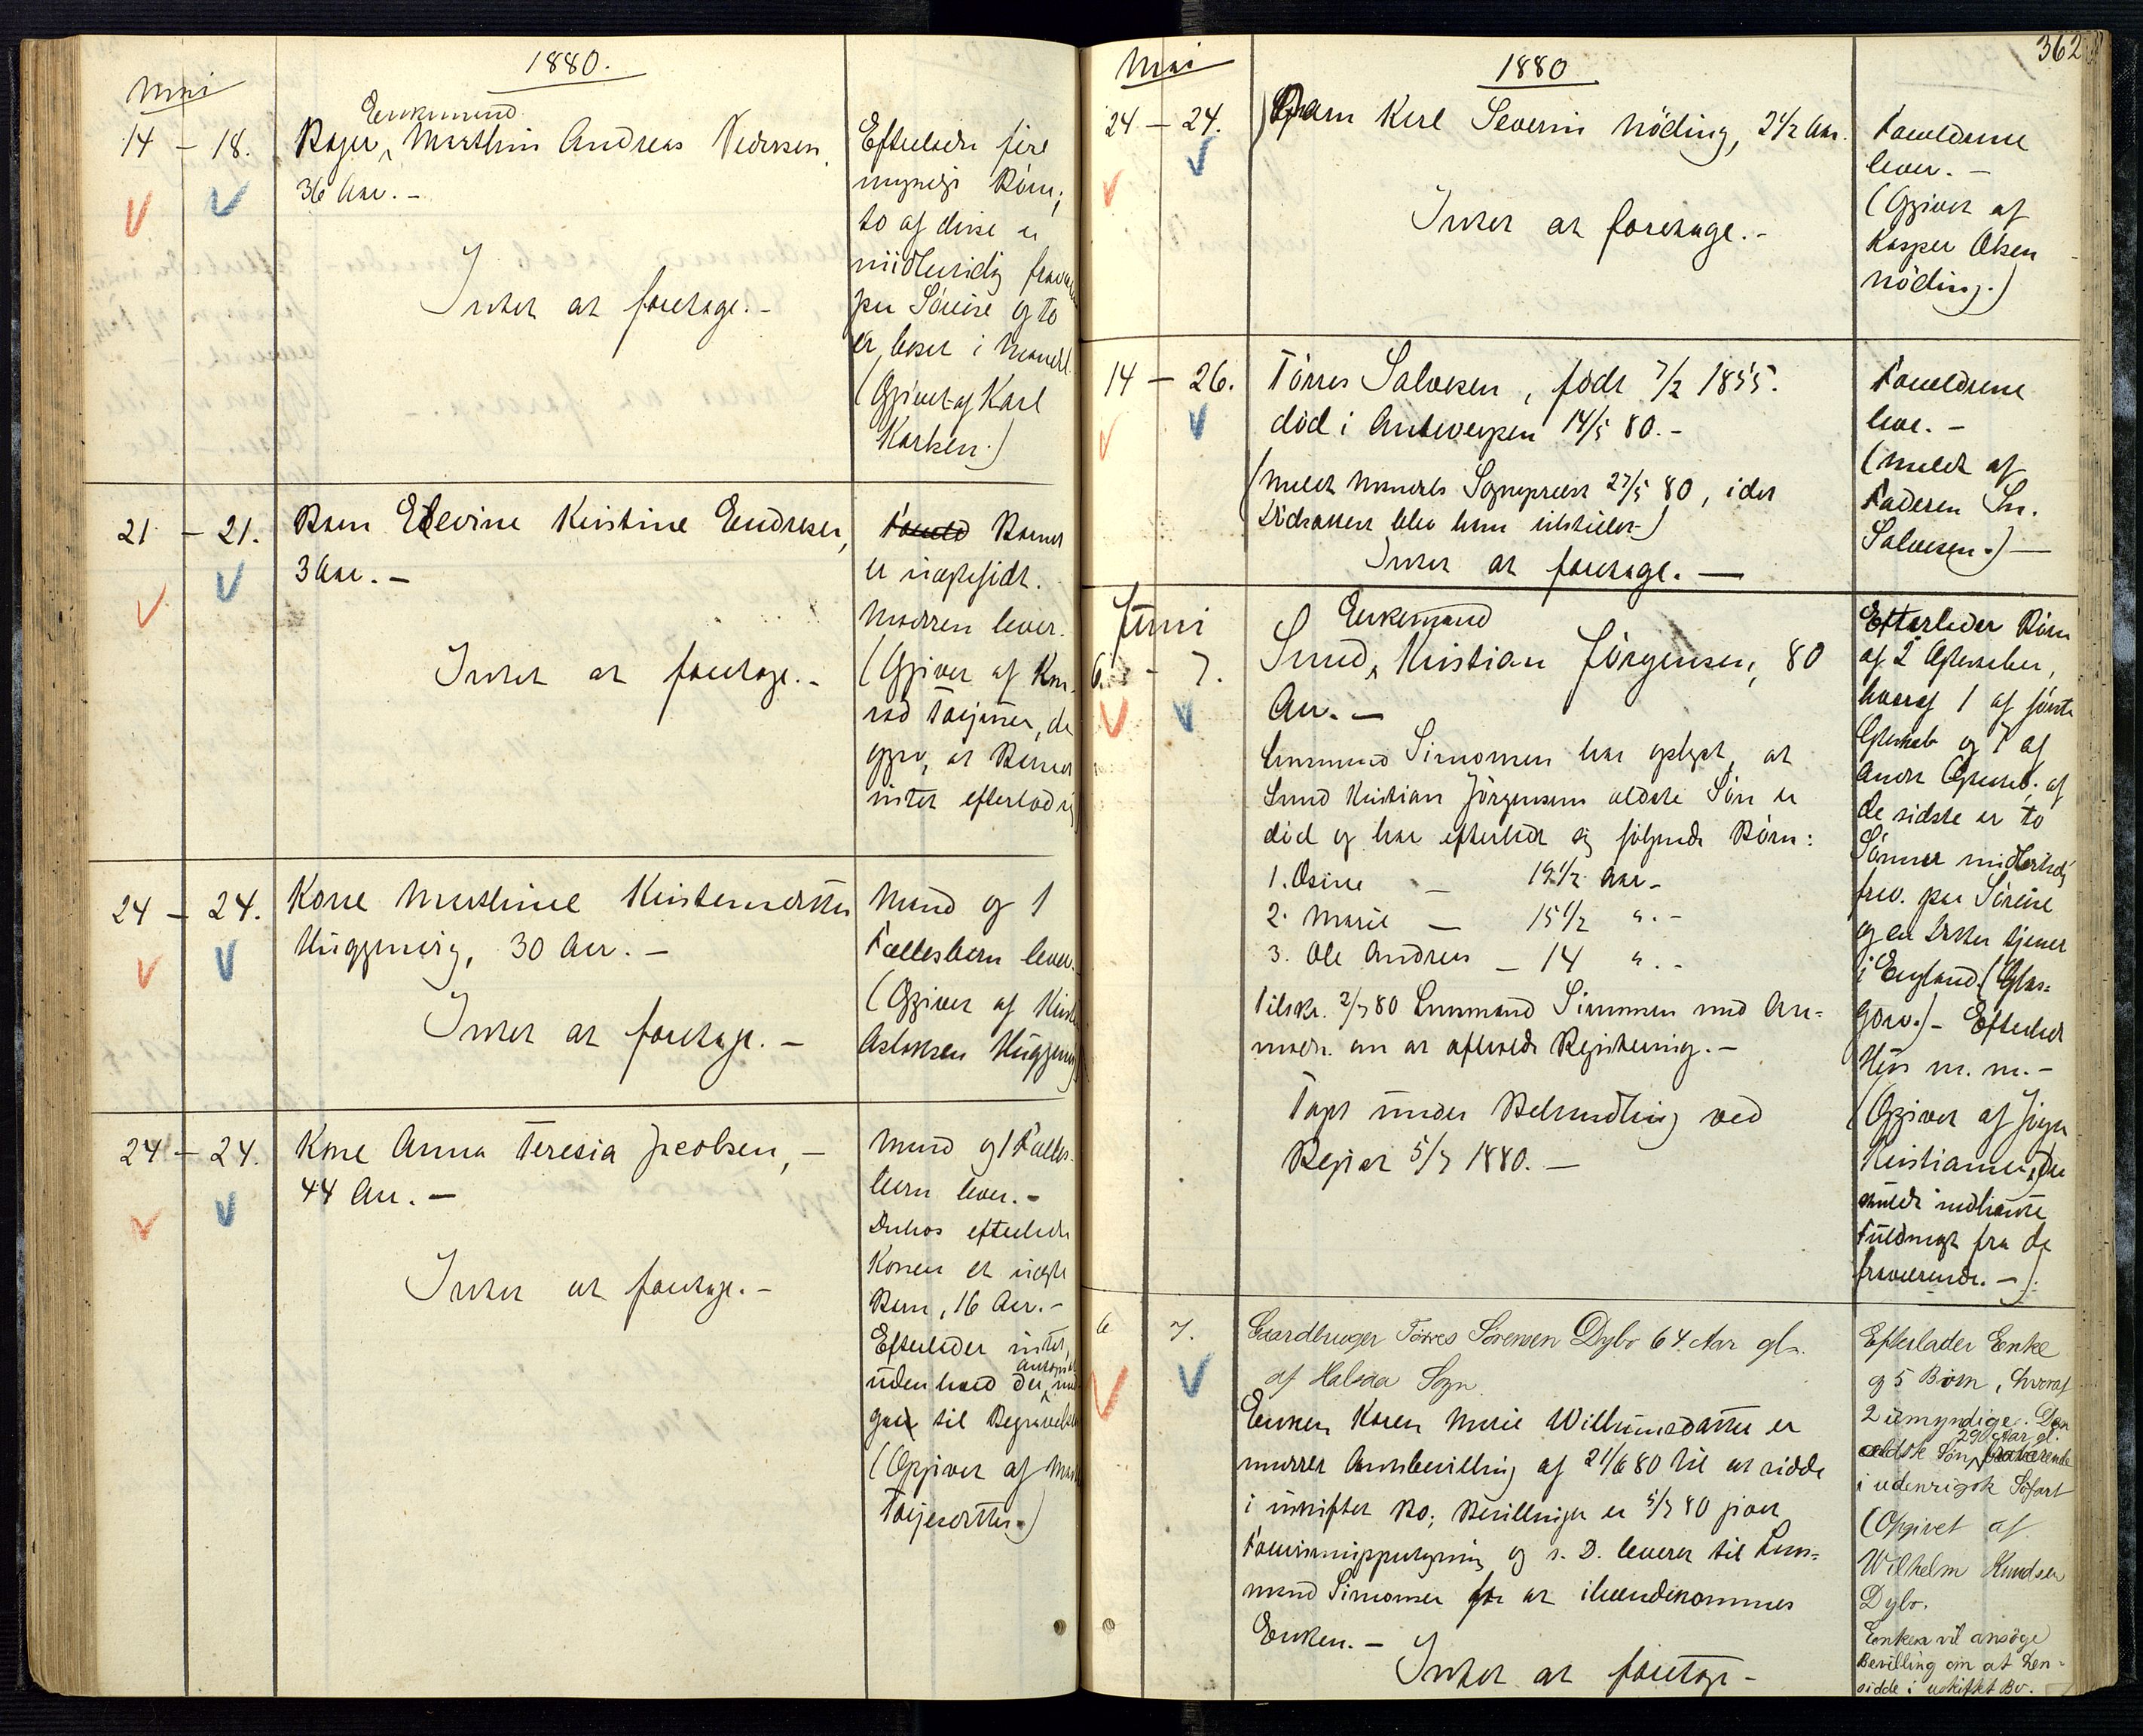 1880.
Mai
Enkemand
14 - 18. Bager, Mathin Andreas Pedersen,
36 Aar. -
Intet at foretage. -
Efterlader fire
myndige Børn;
to af disse er
midlertidig fraværende
paa Søreise og to
er bosat i Mandal.
(Opgivet af Karl
Karlsen.)
21 - 21. Barn Elevine Kristine Endresen,
3 Aar. -
Intet at foretage. -
Foreld Barnet
er uægtefødt.
Moderen lever.
(Opgivet af Kon-
rad Torjusen, der
opgav, at Barnet
intet efterlod sig
24 - 24. Kone Mathine Kristensdatter
Huggening, 30 Aar. -
Intet at foretage. -
Mand og 1
Fællesbarn lever.
(Opgivet af
Aslaksen Huggening)
24 - 24. Kone Anna Teresia Jacobsen, -
44 Aar. -
Intet at foretage. -
Mand og 1 Fælles-
barn lever. -
Duhos efterlader
Konen et uægte
Barn, 16 Aar. -
Efterlader intet,
uden hvad der antagelig
gaar til Begravelsen
(Opgivet af
Torjesdatter.)
362
Mai
1880
24 - 24. Barn Karl Severin Nöding, 2 1/2 Aar.
Intet at foretage. -
Forældrene
lever. -
(Opgivet af
Kasper Olsen
Nöding.)
14 - 26. Törres Salvesen, født 7/2 1855.
död i Antwerpen 14/5 80. -
(Meldt Mandals Sognepræst 27/5 80, idet
Dödsattest blev ham tilstillet.)
Intet at foretage. —
Forældrene
leve. -
(Meldt af
Faderen Sn.
Salvesen.) —
Juni
Enkemand
6. - 7. Smed, Kristian Jörgensen, 80
Aar. —
Lensmand Simonsen har oplyst, at
Smed Kristian Jörgensens ældste Sön er
död og har efterladt sig følgende Børn:
1. Osine - 19 1/2 Aar -
2. Marie - 15 1/2 ". -
3. Ole Andreas - 14 ". -
Tilskr. 2/7 80 Lensmand Simonsen med An-
modn. om at afholde Registrering. -
Tagt under Behandling ved
Begjær 5/7 1880. —
Efterlader Børn
af 2 Ægteskaber,
hvoraf 1 af første
Ægteskab og 7 af
andet Ægteskab; af
de sidste er to
Sønner midlertidig
frav. paa Søreise
og en Datter tjener
i England. (Glas-
gow.) - Efterladt
Hus m. m. -
(Opgivet af Jörgen
Kristiansen, der
skulde indhente
Fuldmagt fra de
fraværende. -)
6 7. Gaardbruger Törres Sörensen Dybo 64 Aar gl.
af Halsaa Sogn.
Enken Karen Marie Willumsdatter er
meddelt Amtsbevilling af 21/6 80 til at sidde
i uskiftet Bo; Bevillingen er 5/7 80 given
Forevisningspaategning og s. D. leveret til Lens-
mand Simonsen for at ihændekommes
Enken. -
Intet at foretage -
Efterlader Enke
og 5 Börn, hvoraf
2 umyndige. Den
29 Aar gl.
ældste Sön, fraværende
i udenrigsk Söfart
(Opgivet af
Wilhelm Knudsen
Dybo.
Enken vil ansöge
Bevilling om at hen-
sidde i uskiftet Bo.